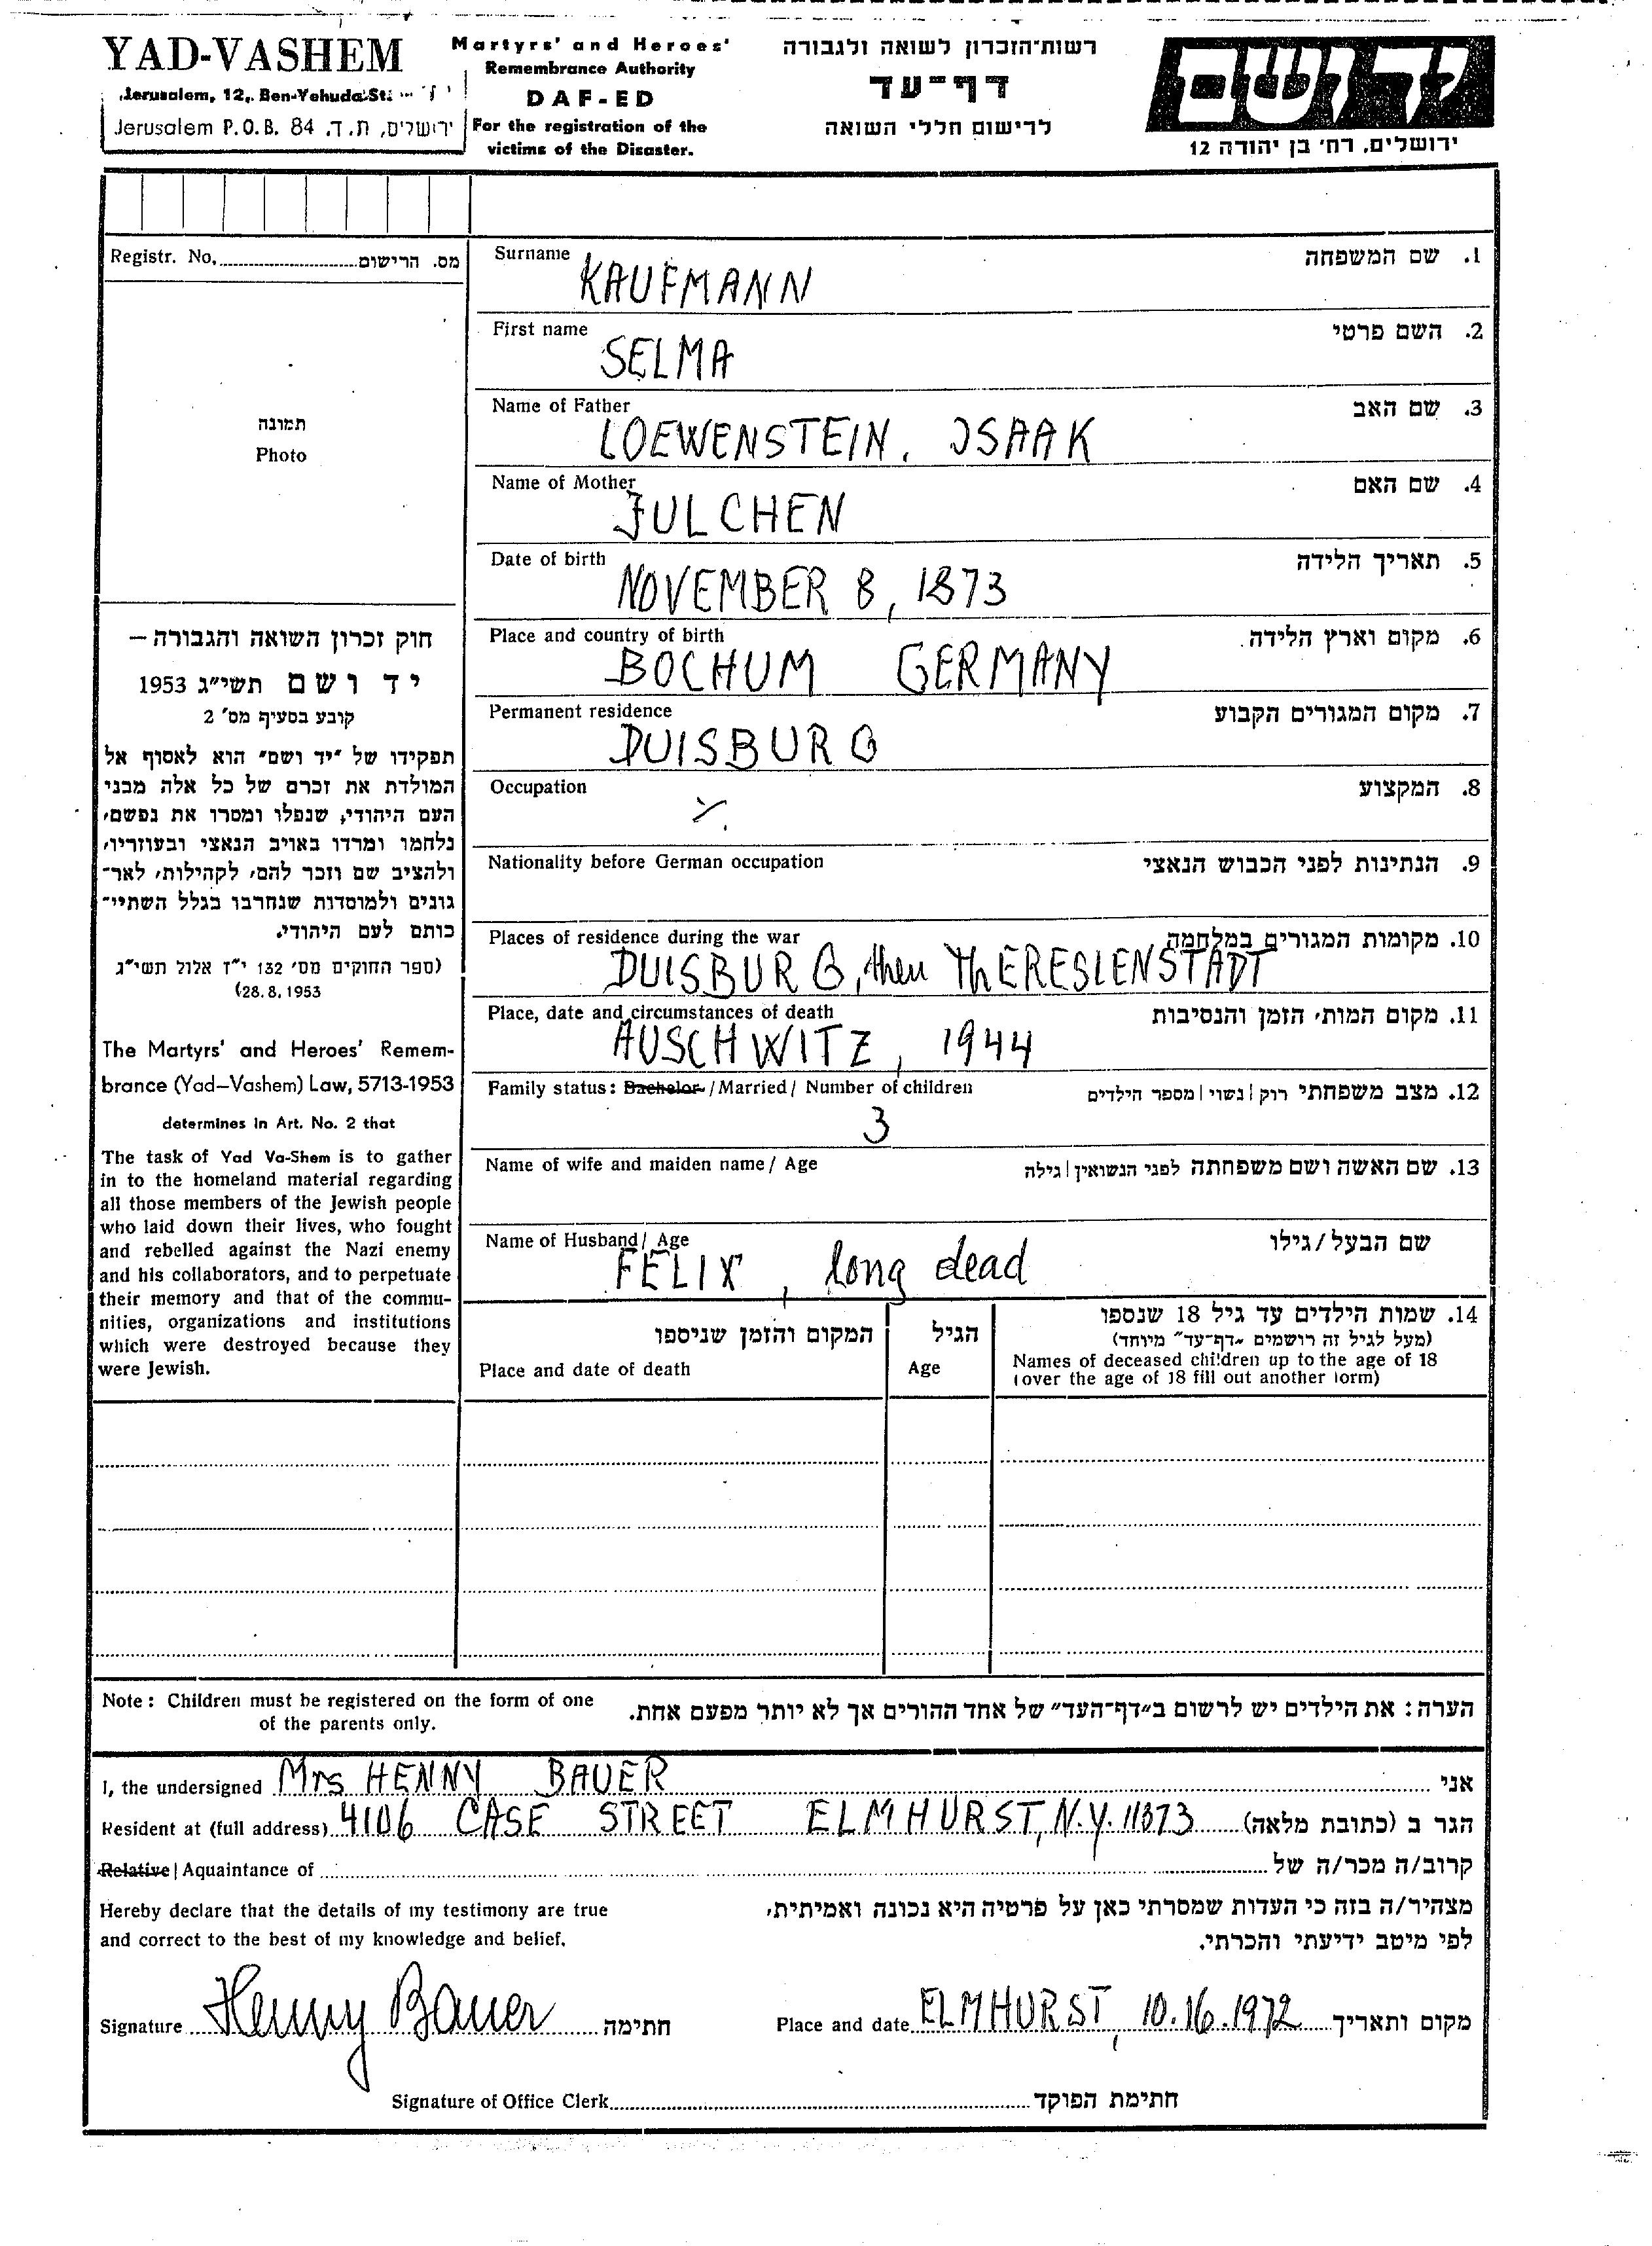 YAD-VASHEM
Jerusalem, 12, Ben-Yehuda St.
Jerusalem P.O.B. 84 ירושלים, ת.ד.
Martyrs' and Heroes'
Remembrance Authority
DAF-ED
For the registration of the
victims of the Disaster.
רשות־הזכרון לשואה ולגבורה
דף־עד
לרישום חללי השואה
יד ושם
ירושלים, רח' בן יהודה 12
Registr. No. מס. הרישום
תמונה
Photo
חוק זכרון השואה והגבורה –
יד ושם תשי״ג 1953
קובע בסעיף מס' 2
תפקידו של ״יד ושם״ הוא לאסוף אל
המולדת את זכרם של כל אלה מבני
העם היהודי, שנפלו ומסרו את נפשם,
נלחמו ומרדו באויב הנאצי ובעוזריו,
ולהציב שם וזכר להם, לקהילות, לאר־
גונים ולמוסדות שנחרבו בגלל השתיי־
כותם לעם היהודי.
(ספר החוקים מס' 132 י״ז אלול תשי״ג
28.8.1953)
The Martyrs' and Heroes' Remem-
brance (Yad–Vashem) Law, 5713-1953
determines in Art. No. 2 that
The task of Yad Va-Shem is to gather
in to the homeland material regarding
all those members of the Jewish people
who laid down their lives, who fought
and rebelled against the Nazi enemy
and his collaborators, and to perpetuate
their memory and that of the commu-
nities, organizations and institutions
which were destroyed because they
were Jewish.
Surname 1. שם המשפחה
KAUFMANN
First name 2. השם פרטי
SELMA
Name of Father 3. שם האב
LOEWENSTEIN, ISAAK
Name of Mother 4. שם האם
JULCHEN
Date of birth 5. תאריך הלידה
NOVEMBER 8, 1873
Place and country of birth 6. מקום וארץ הלידה
BOCHUM GERMANY
Permanent residence 7. מקום המגורים הקבוע
DUISBURG
Occupation 8. המקצוע
Nationality before German occupation 9. הנתינות לפני הכבוש הנאצי
Places of residence during the war 10. מקומות המגורים במלחמה
DUISBURG, then ThERESIENSTADT
Place, date and circumstances of death 11. מקום המות, הזמן והנסיבות
AUSCHWITZ, 1944
Family status: Bachelor / Married / Number of children 12. מצב משפחתי רוק | נשוי | מספר הילדים
3
Name of wife and maiden name / Age 13. שם האשה ושם משפחתה לפני הנשואין | גילה
Name of Husband / Age שם הבעל / גילו
FELIX, long dead
14. שמות הילדים עד גיל 18 שנספו
(מעל לגיל זה רושמים ״דף־עד״ מיוחד)
Names of deceased children up to the age of 18
(over the age of 18 fill out another form)
הגיל
Age
המקום והזמן שניספו
Place and date of death
Note: Children must be registered on the form of one
of the parents only.
הערה: את הילדים יש לרשום ב״דף־העד״ של אחד ההורים אך לא יותר מפעם אחת.
I, the undersigned Mrs HENNY BAUER אני
Resident at (full address) 4106 CASE STREET ELMHURST, N.Y. 11373 הגר ב (כתובת מלאה)
Relative | Aquaintance of קרוב/ה מכר/ה של
Hereby declare that the details of my testimony are true
and correct to the best of my knowledge and belief.
מצהיר/ה בזה כי העדות שמסרתי כאן על פרטיה היא נכונה ואמיתית,
לפי מיטב ידיעתי והכרתי.
Signature Henny Bauer חתימה Place and date ELMHURST, 10.16.1972 מקום ותאריך
Signature of Office Clerk חתימת הפוקד